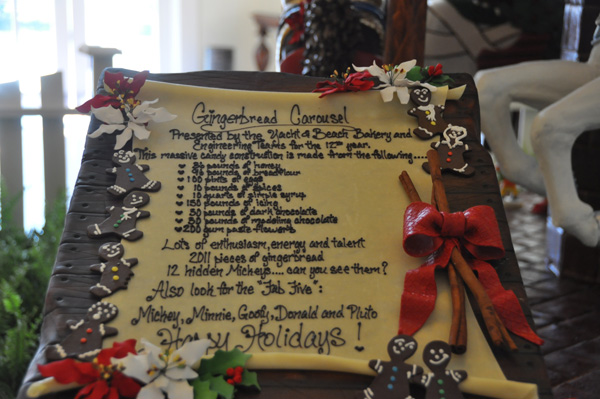 Gingerbread Carousel
Presented by the Yacht & Beach Bakery and
Engineering Teams for the 12th year.
This massive candy construction is made from the following....
pounds of honey
pounds of breadflour
100 pints of eggs
10 pounds of spices
10 quarts of simple syrup
150 pounds of icing
30 pounds of dark chocolate
50 pounds of modeling chocolate
200 gum paste flowers
Lots of enthusiasm, energy and talent
2011 pieces of gingerbread
12 hidden Mickeys.... can you see them?
Also look for the "Fab Five":
Mickey, Minnie, Goofy, Donald and Pluto
Happy Holidays!